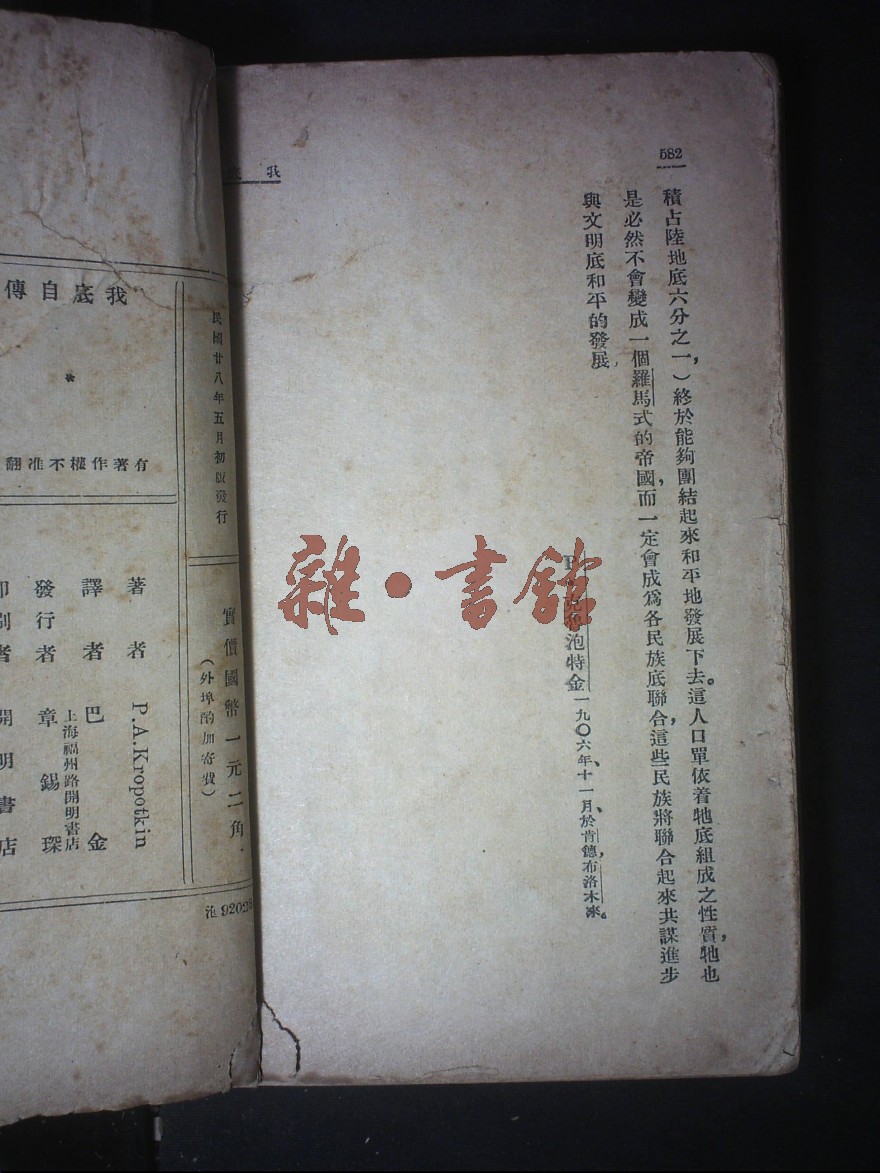 582
積占陸地底六分之一，）終於能夠團結起來和平地發展下去。這人口單依着牠底組成之性質，牠也
是必然不會變成一個羅馬式的帝國，而一定會成爲各民族底聯合，這些民族將聯合起來共謀進步
與文明底和平的發展
泡特金一九〇六年、十一月、於肯德布洛木來。
我
雜·書館
民國廿八年五月初版發行
實價國幣一元二角
（外埠酌加寄費）
我底自傳
*
有著作權不准翻
著者 P.A.Kropotkin
譯者 巴金
發行者 章錫琛
上海福州路開明書店
印刷者 開明書店